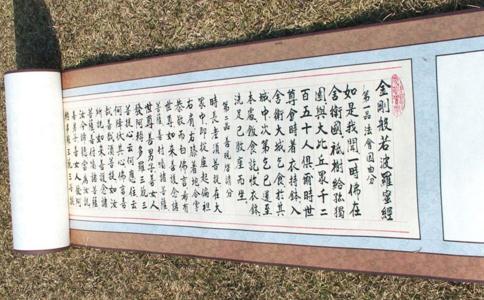 金剛般若波羅蜜經
第一品法會因由分
如是我聞一時佛在
舍衛國祇樹給孤獨
園與大比丘眾千二
百五十人俱爾時世
尊食時着衣持鉢入
舍衛大城乞食於其
城中次第乞已還至
本處飯食訖收衣鉢
洗足已敷座而坐
第二品善現啟請分
時長老須菩提在大
眾中即從座起偏袒
右肩右膝著地合掌
恭敬而白佛言希有
世尊如來善護念諸
菩薩善付囑諸菩薩
世尊善男子善女人
發阿耨多羅三藐三
菩提心云何應住云
何降伏其心佛言善
哉善哉須菩提如汝
所說如來善護念諸
菩薩善付囑諸菩薩
汝今諦聽當為汝說
善男子善女人發阿
耨多羅三藐三菩提